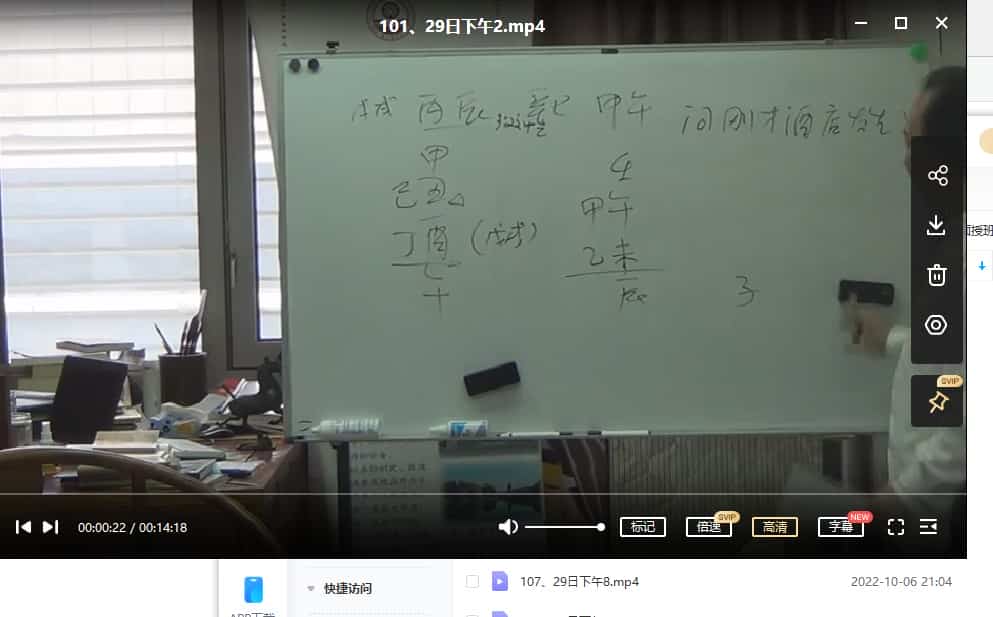 101、29日下午2.mp4
丙辰 甲午 问刚才酒店发生
甲
己丑△
丁酉（戊戌）
七
十
生
甲午
乙未
辰
子
面授班
SVIP
00:00:22 / 00:14:18
标记
倍速
SVIP
高清
字幕
NEW
快捷访问
107、29日下午8.mp4
2022-10-06 21:04
APP下载